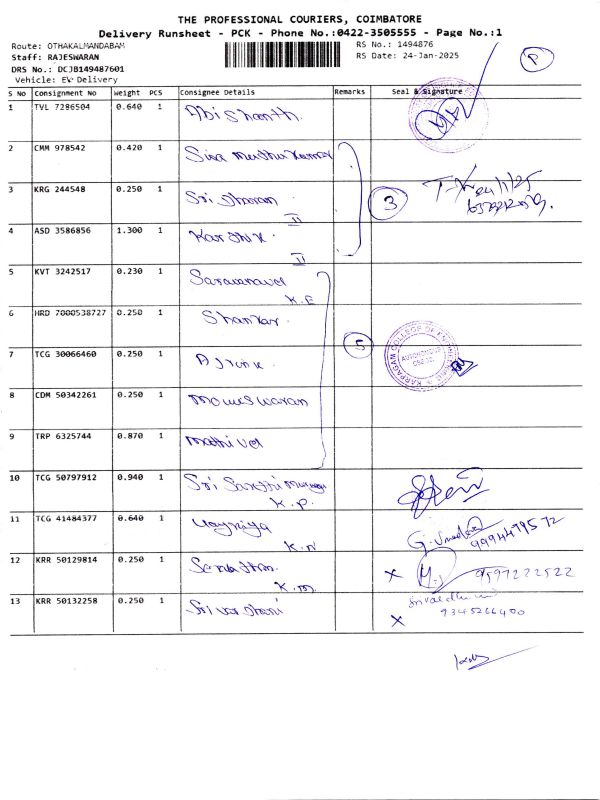 THE PROFESSIONAL COURIERS, COIMBATORE
Delivery Runsheet - PCK - Phone No.:0422-3505555 - Page No.:1
Route: OTHAKALMANDABAM
RS No.: 1494876
Staff: RAJESWARAN
RS Date: 24-Jan-2025
DRS No.: DCJB149487601
Vehicle: EV Delivery
P
S No Consignment No Weight PCS Consignee Details Remarks Seal & Signature
1 TVL 7286504 0.640 1 Abishanth
2 CMM 978542 0.420 1 Siva
3 KRG 244548 0.250 1 Sri Sharan II
3
4 ASD 3586856 1.300 1 Karthik II
5 KVT 3242517 0.230 1 K.E
6 HRD 7000538727 0.250 1 Shankar
7 TCG 30066460 0.250 1
5
KARPAGAM COLLEGE OF
AUTONOMOUS
8 CDM 50342261 0.250 1 Moweswaran
9 TRP 6325744 0.870 1 Mathivel
10 TCG 50797912 0.940 1 Sri K.P.
11 TCG 41484377 0.640 1 K.N
9994479572
12 KRR 50129814 0.250 1 K.M.
x 9597222522
13 KRR 50132258 0.250 1 Srivarshani
x 9345266400